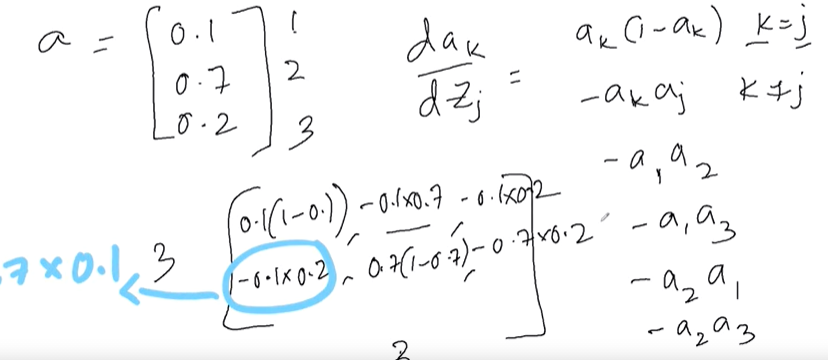 a = [0.1 1
0.7 2
0.2] 3
dak/dzj = ak(1-ak) k=j
-akaj k≠j
-a1a2
-a1a3
-a2a1
-a2a3
[0.1(1-0.1), -0.1x0.7, -0.1x0.2
-0.1x0.2, 0.7(1-0.7), -0.7x0.2
]
7x0.1 3
3